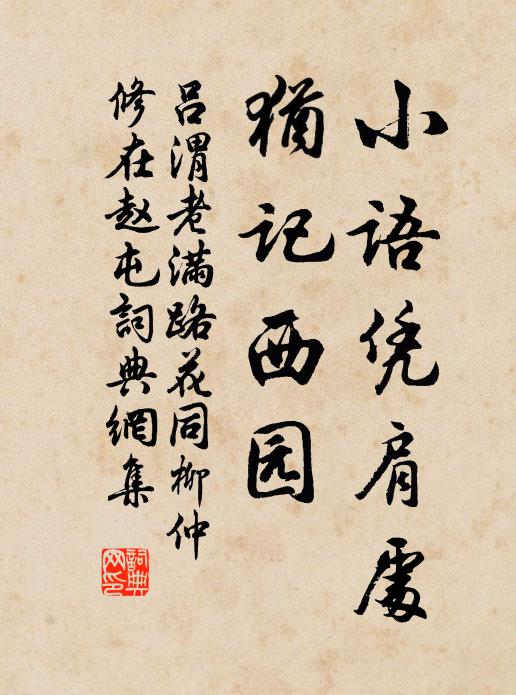 小語凭肩處
猶记西园
吕渭老满路花同柳仲
修在赵屯詞典網集
詞典网印